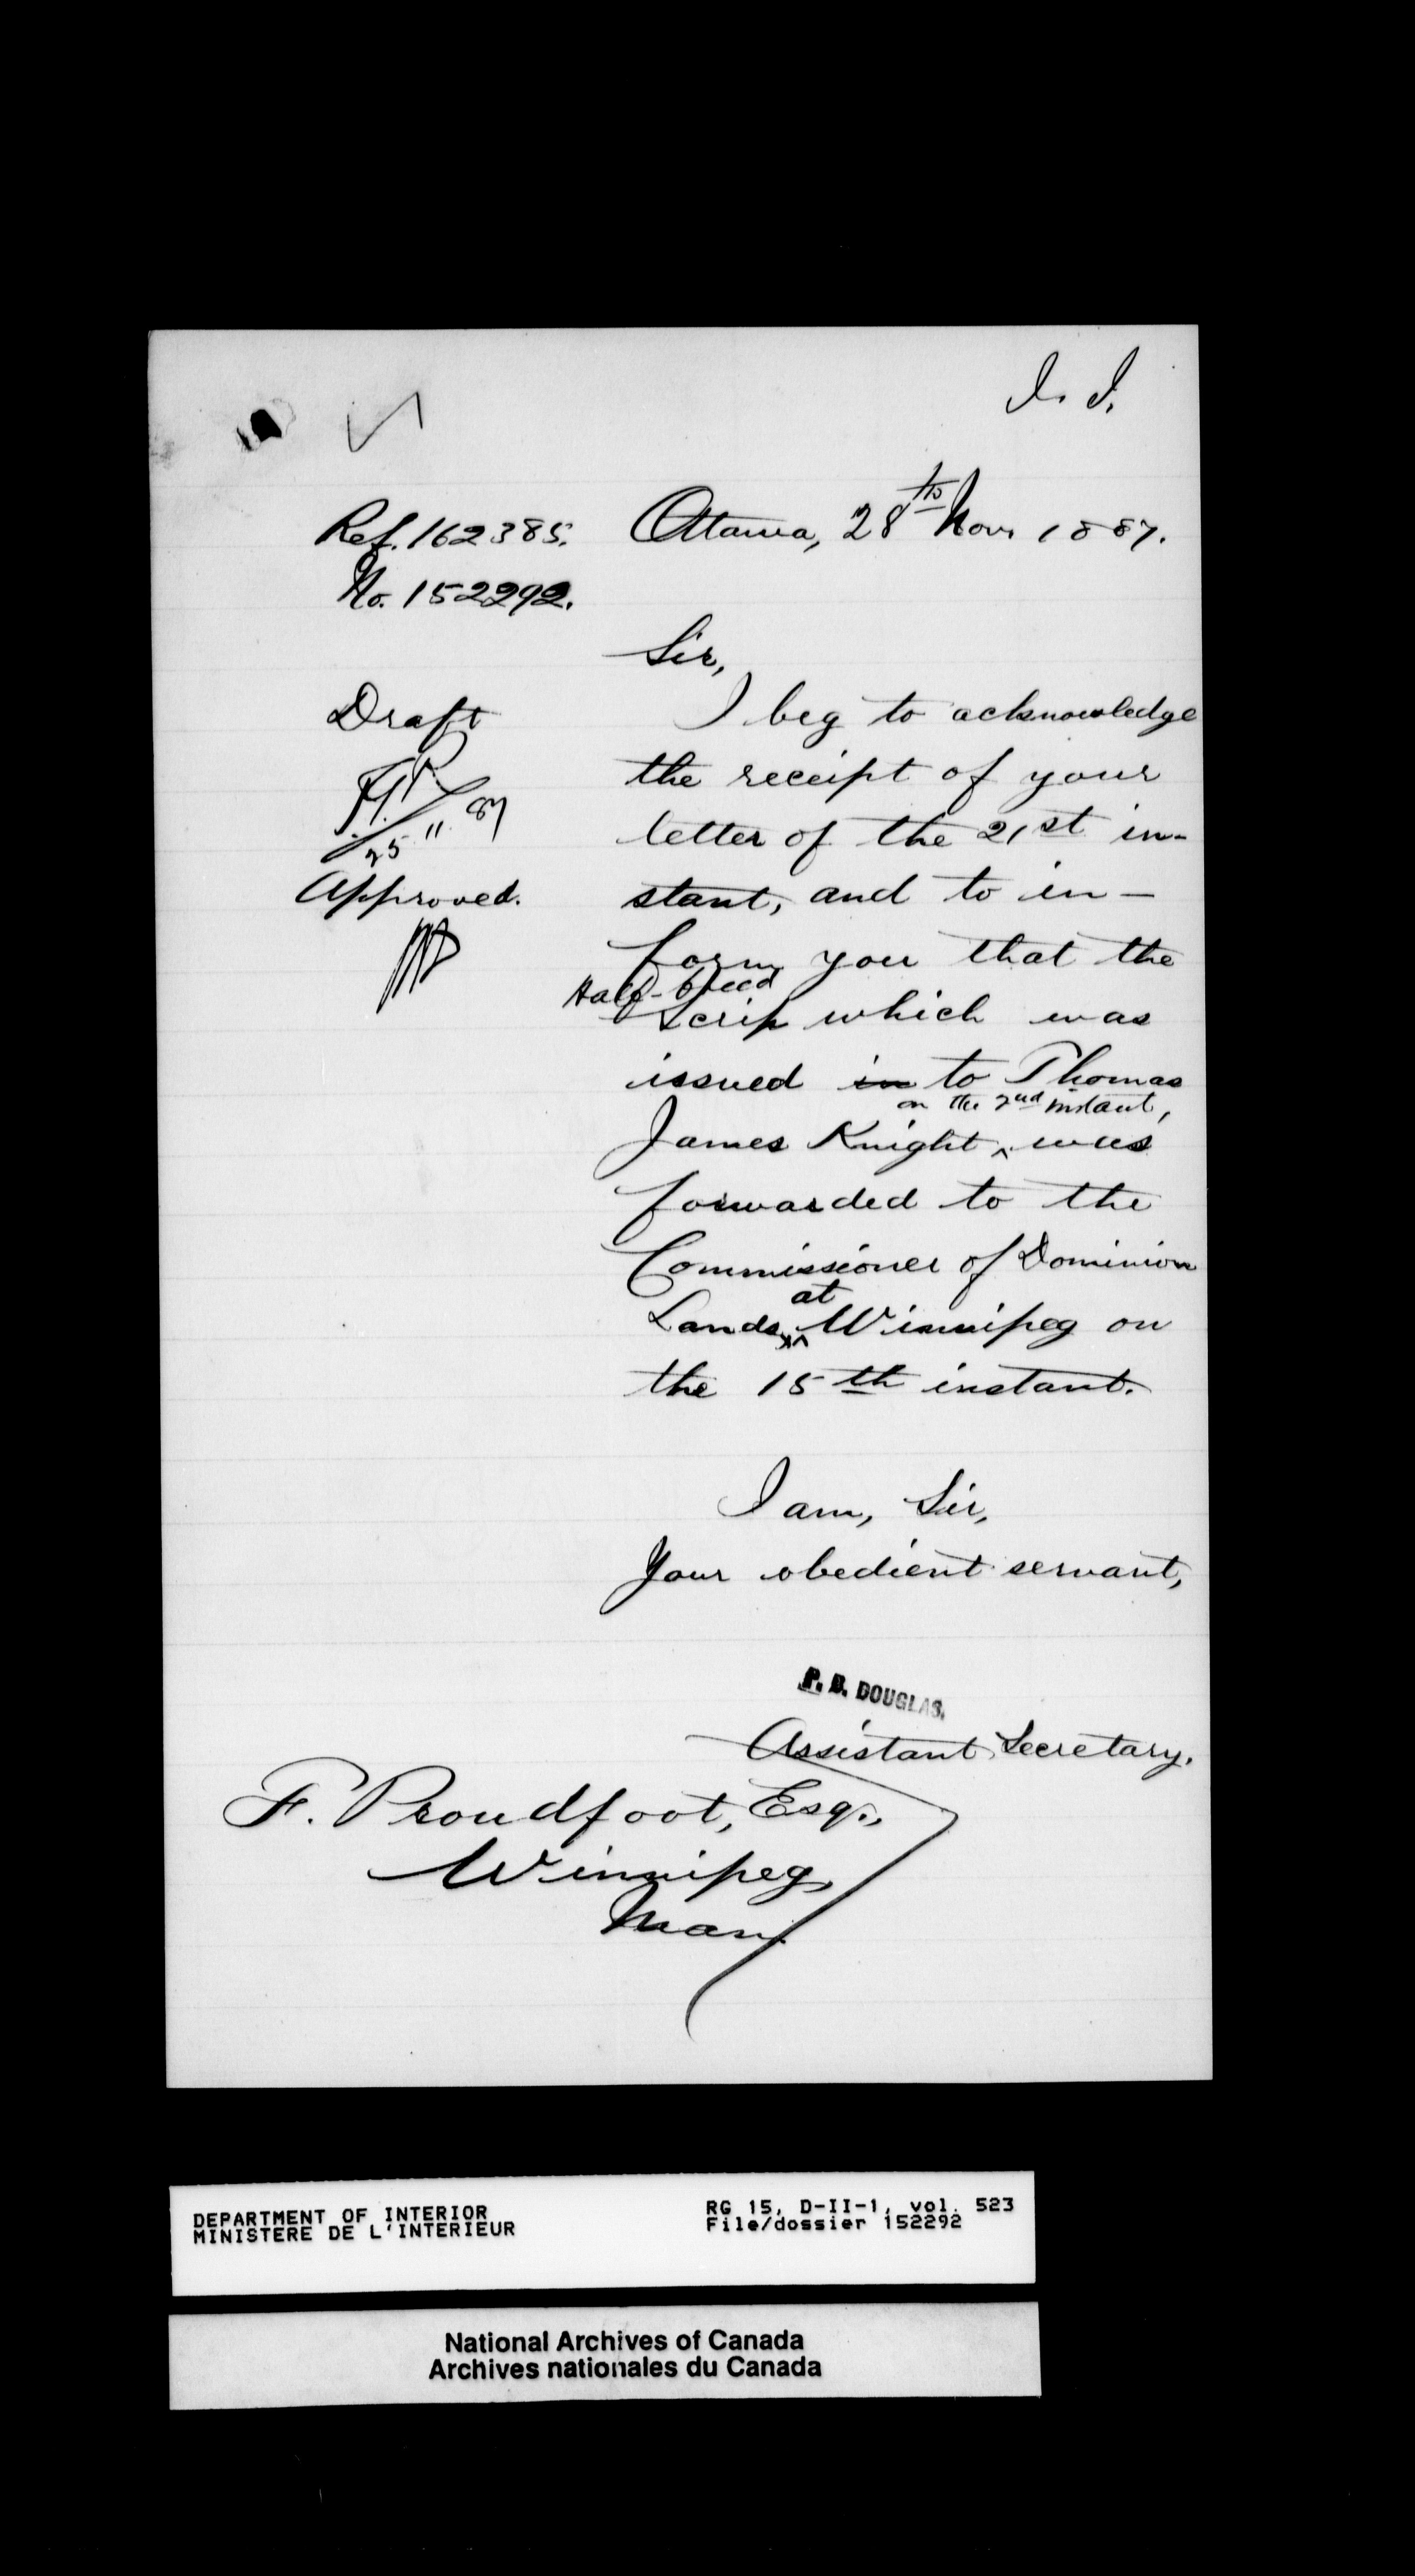 Ref. 162385. Ottawa, 28th Nov. 1887.
No. 152292.
Sir,
Draft
I beg to acknowledge
the receipt of your
25 11. 87
letter of the 21st in-
Approved.
stant, and to in-
form you that the
Half-breed
Scrip which was
issued in to Thomas
on the 2nd instant,
James Knight ^ was
forwarded to the
Commissioner of Dominion
at
Lands, ^ Winnipeg on
the 15th instant.
I am, Sir,
Your obedient servant,
P. B. DOUGLAS.
Assistant Secretary.
F. Proudfoot, Esq.,
Winnipeg
Man.
DEPARTMENT OF INTERIOR
MINISTERE DE L'INTERIEUR
RG 15, D-II-1, vol. 523
File/dossier 152292
National Archives of Canada
Archives nationales du Canada